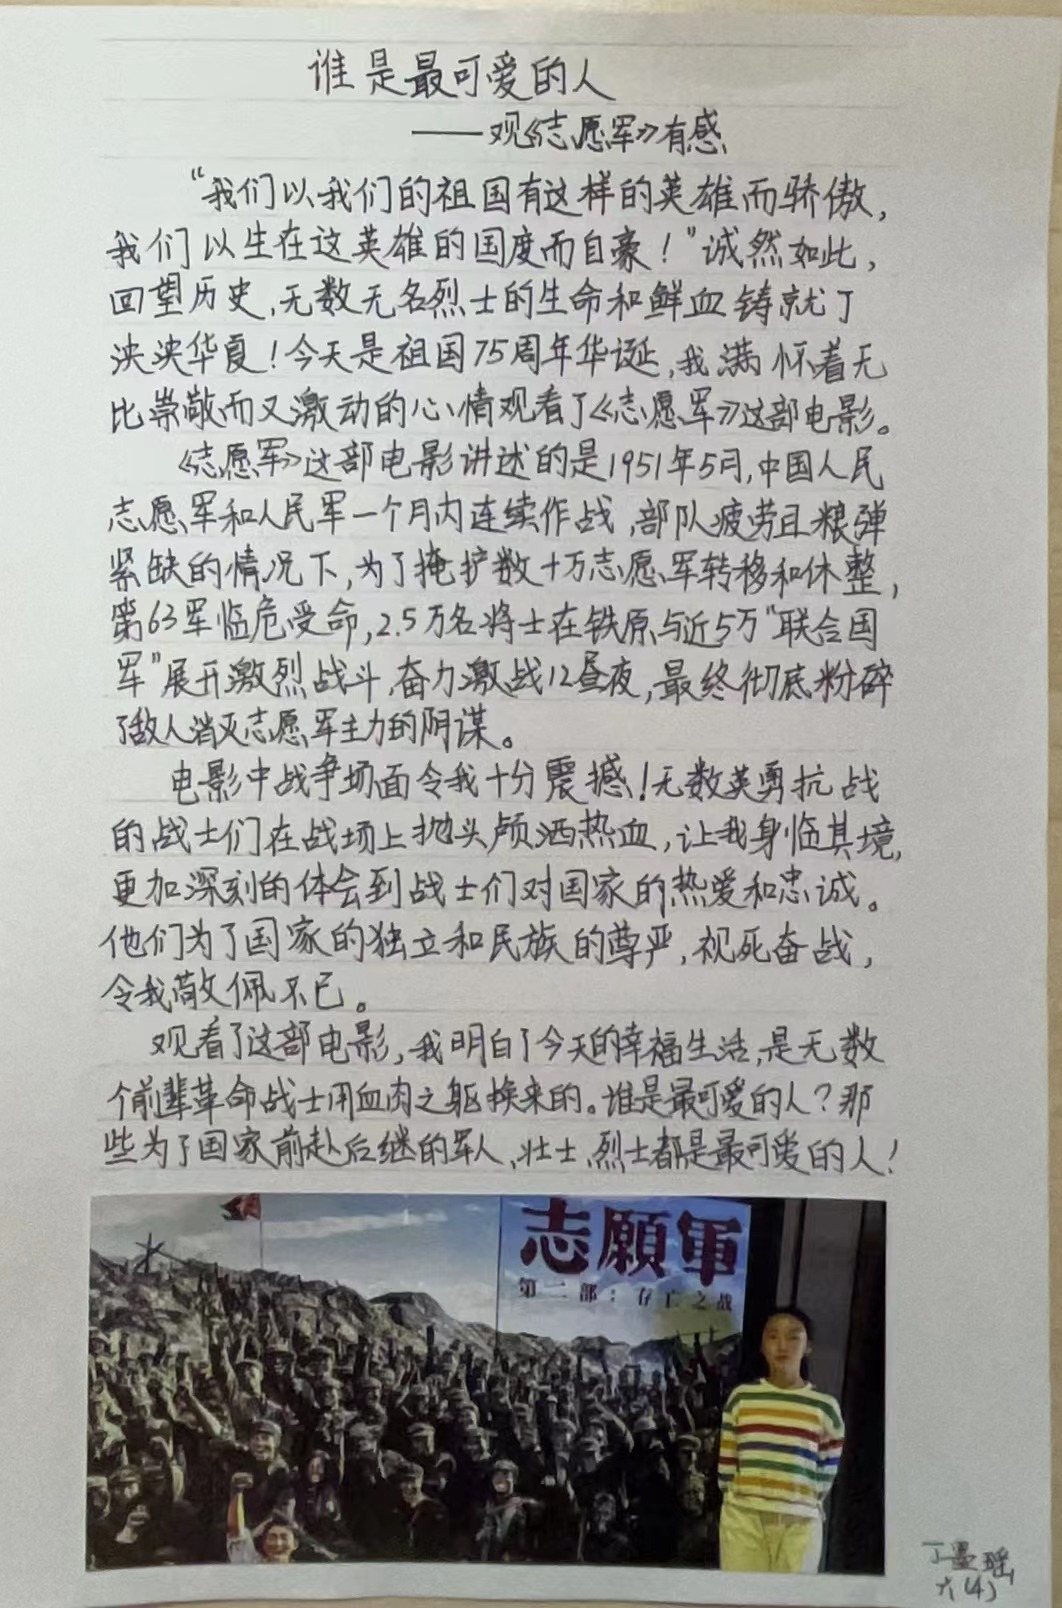 谁是最可爱的人
——观《志愿军》有感
“我们以我们的祖国有这样的英雄而骄傲，
我们以生在这英雄的国度而自豪！”诚然如此，
回望历史，无数无名烈士的生命和鲜血铸就了
泱泱华夏！今天是祖国75周年华诞，我满怀着无
比崇敬而又激动的心情观看了《志愿军》这部电影。
《志愿军》这部电影讲述的是1951年5月，中国人民
志愿军和人民军一个月内连续作战，部队疲劳且粮弹
紧缺的情况下，为了掩护数十万志愿军转移和休整，
第63军临危受命，2.5万名将士在铁原与近5万“联合国
军”展开激烈战斗，奋力激战12昼夜，最终彻底粉碎
了敌人消灭志愿军主力的阴谋。
电影中战争场面令我十分震撼！无数英勇抗战
的战士们在战场上抛头颅洒热血，让我身临其境，
更加深刻的体会到战士们对国家的热爱和忠诚。
他们为了国家的独立和民族的尊严，视死奋战，
令我敬佩不已。
观看了这部电影，我明白了今天的幸福生活，是无数
个前辈革命战士用血肉之躯换来的。谁是最可爱的人？那
些为了国家前赴后继的军人、壮士、烈士都是最可爱的人！
志願軍
第二部：存亡之战
丁墨瑶
六(4)